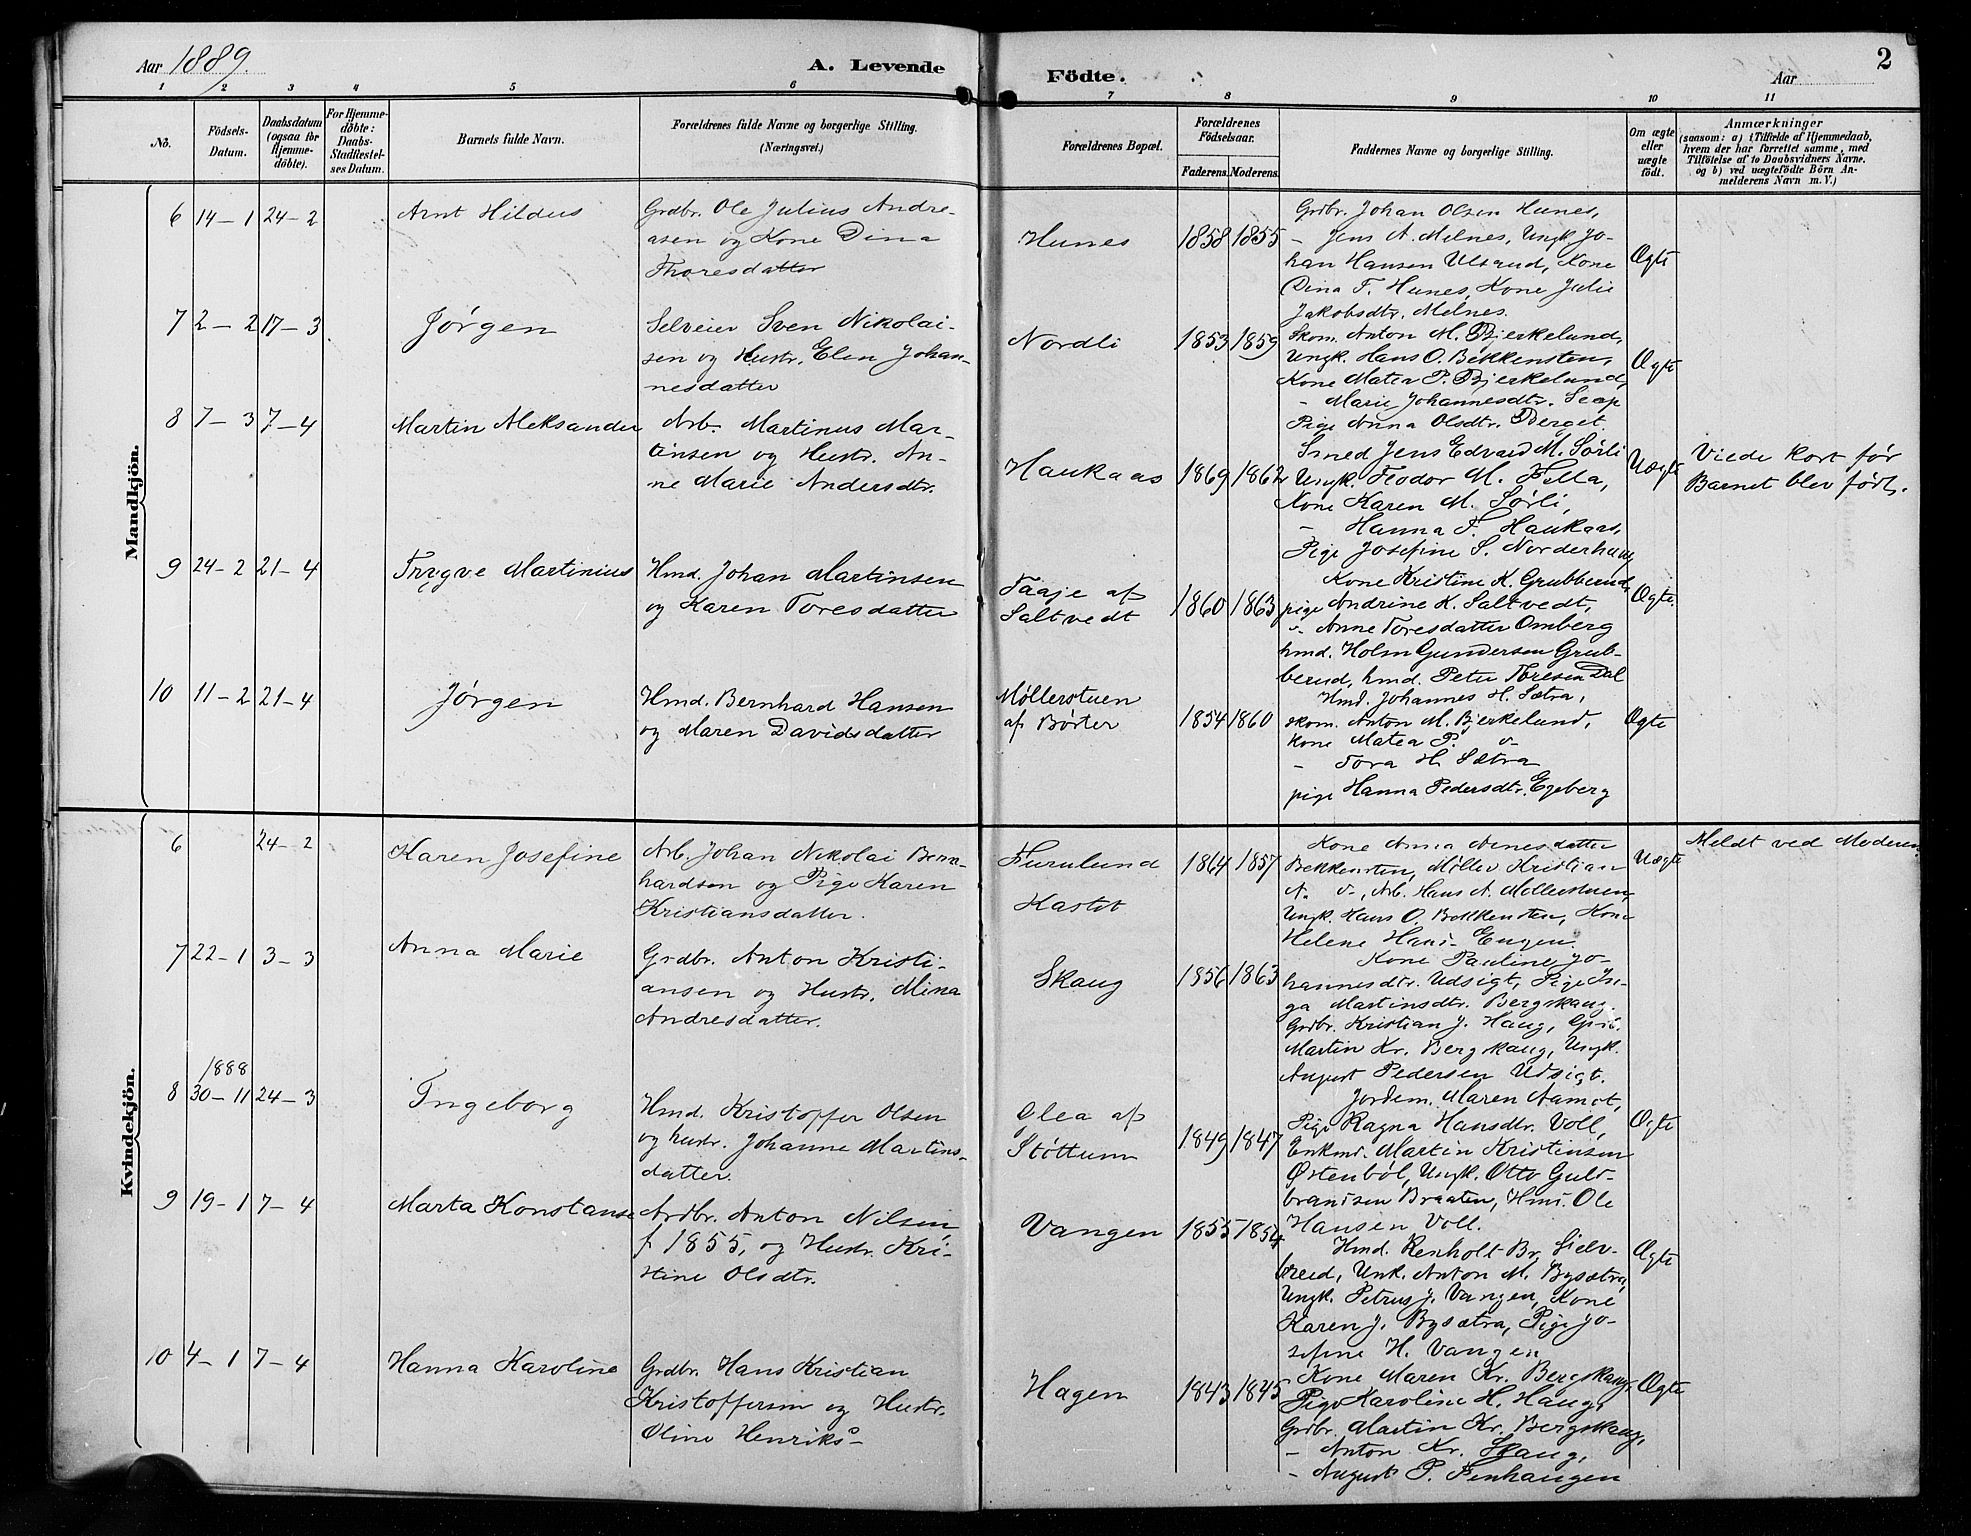 Aar 1889.
A. Levende
Födte.
Aar
2
1 2 3 4 5 6 7 8 9 10 11
No.
Födsels-
Datum.
Daabsdatum
(ogsaa for
Hjemme-
döbte).
For Hjemme-
döbte:
Daabs-
Stadfæstel-
ses Datum.
Barnets fulde Navn.
Forældrenes fulde Navne og borgerlige Stilling.
(Næringsvei.)
Forældrenes Bopæl.
Forældrenes
Födselsaar.
Faderens. Moderens.
Faddernes Navne og borgerlige Stilling.
Om ægte
eller
uægte
födt.
Anmærkninger
(saasom: a) i Tilfælde af Hjemmedaab,
hvem der har forrettet samme, med
Tilföielse af to Daabsvidners Navne,
og b) ved uægtefödte Börn An-
melderens Navn m. V.)
Mandkjön.
6 14-1 24-2
Arnt Hildus
Grdbr. Ole Julius Andre-
asen og Kone Dina
Thoresdatter
Hunes
1858 1855
Grdbr. Johan Olsen Hunes,
- Jens A. Melnes, Ungk. Jo-
han Hansen Ulsrud, Kone
Dina T. Hunes, Kone Julie
Jakobsdtr. Melnes.
Ægte
7 2-2 17-3
Jørgen
Selveier Sven Nikolai-
sen og Hustr. Elen Johan-
nesdatter
Nordli
1853 1859
Skom. Anton M. Bjerkelund,
Ungk. Hans O. Bekkensten,
Kone Matea P. Bjerkelund,
- Marie Johannesdtr.
Pige Anna Olsdtr. Berget.
Ægte
8 7-3 7-4
Martin Aleksander
Arb. Martinus Mar-
tinsen og Hustr. An-
ne Marie Andersdtr.
Haukaas
1869 1862
Smed Jens Edvard M. Sørli
Ungk. Teodor M. Fella,
Kone Karen M. Sørli,
- Hanna F. Haukaas,
Pige Josefine S. Norderhaug
Uægte
Viede kort før
Barnet blev født.
9 24-2 21-4
Trygve Martinius
Hmd. Johan Martinsen
og Karen Toresdatter
Taaje af
Saltvedt
1860 1863
Kone Kristine K. Grubberud
pige Andrine K. Saltvedt,
" Anne Toresdatter Omberg
hmd. Holm Gundersen Grub-
berud, hmd. Peter Toresen Dal
Ægte.
10 11-2 21-4
Jørgen
Hmd. Bernhard Hansen
og Maren Davidsdatter
Møllerstuen
af Børter
1854 1860
Hmd. Johannes H. Sætra,
skom. Anton M. Bjerkelund,
kone Matea P. "
- Tora H. Sætra
pige Hanna Pedersdtr. Egeberg
Ægte
Kvindekjön.
6 24-2
Karen Josefine
Arb. Johan Nikolai Bern-
hardsen og Pige Karen
Kristiansdatter.
Furulund
Kastet
1864 1857
Kone Anna Arnesdatter
Bekkensten, Møller Kristian
A. ", Arb. Hans A. Møllerstuen,
Ungk. Hans O. Bekkensten, Kone
Helene Hans- Engen.
Uægte
Meldt ved Moderen
7 22-1 3-3
Anna Marie
Grdbr. Anton Kristi-
ansen og Hustr. Mina
Andresdatter.
Skaug
1856 1863
Kone Pauline Jo-
hannesdtr. Udsigt, Pige In-
ga Martinsdtr. Bergskaug.
Grdbr. Kristian J. Haug,
Martin Kr. Bergskaug, Ungk.
August Pedersen Udsigt.
8 1888
30-11 24-3
Ingeborg
Hmd. Kristoffer Olsen
og hustr. Johanne Martins-
datter.
Glea af
Støttum
1849 1847
Jordem. Maren Aamot,
Pige Ragna Hansdtr. Voll,
Enkmd. Martin Kristinsen
Østenbøl, Ungk. Otto Guld-
brandsen Braaten, Hmd. Ole
Hansen Voll.
Ægte
9 19-1 7-4
Marta Konstanse
Grdbr. Anton Nilsen
f. 1855, og Hustr. Kri-
stine Olsdtr.
Vangen
1855 1854
Hmd. Renholt Br. Sielv-
breid, Unk. Anton M. Bysætra,
Ungk. Petrus J. Vangen, Kone
Karen J. Bysætra, Pige Jo-
sefine H. Vangen
Ægte
10 4-1 7-4
Hanna Karoline
Grdbr. Hans Kristian
Kristoffersen og Hustr.
Oline Henriks-
Hagen
1843 1845
Kone Maren Kr. Bergskaug,
Pige Karoline H. Haug,
Grdbr. Martin Kr. Bergskaug,
- Anton Kr. Skaug,
- August P. Fenhaugen
Ægte